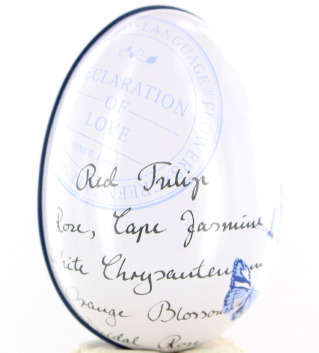 LANGUAGE of FLOWERS
DECLARATION
OF
LOVE
SINCE
Red Tulip
Rose, Cape Jasmine
White Chrysantemum
Orange Blossom
Bridal Rose